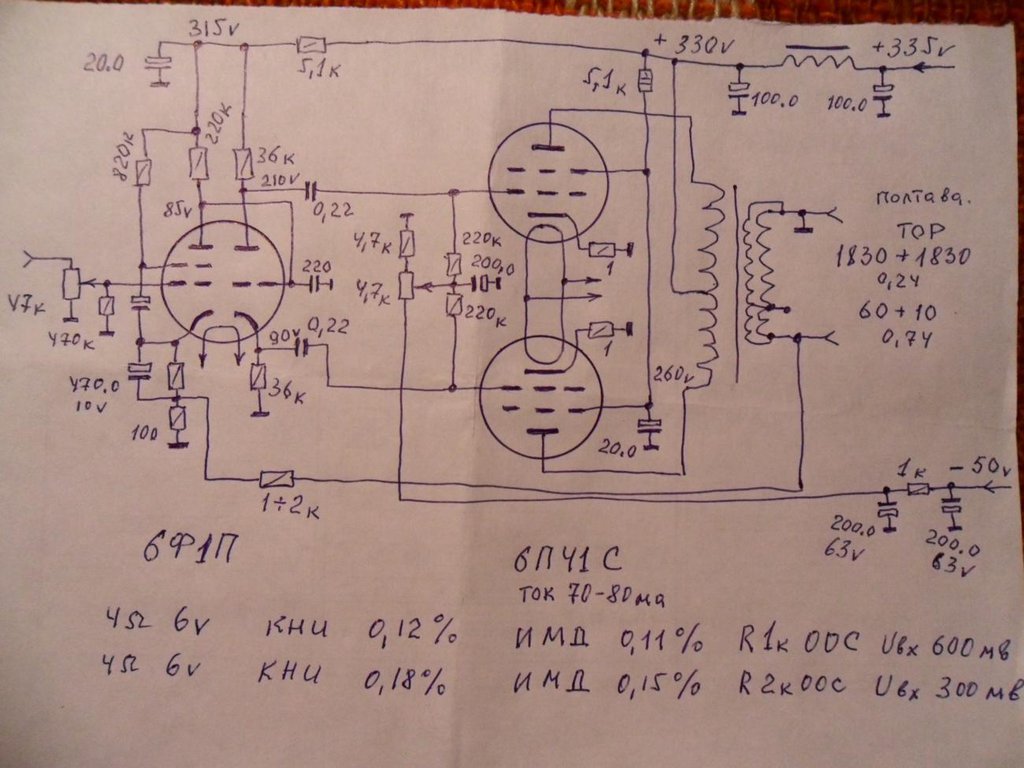 315v
20.0
5,1к
+ 330v
+335v
5,1к
100.0
100.0
820к
220к
36к
210v
0,22
85v
полтава.
ТОР
1830 + 1830
0,24
60 + 10
0,74
4,7к
220к
200,0
220
4,7к
220к
1
47к
470к
0,22
90v
1
470.0
10v
36к
260v
100
20.0
1÷2к
1к
- 50v
200.0
63v
200.0
63v
6Ф1П
6П41С
ток 70-80ма
4Ω 6v КНИ 0,12% ИМД 0,11% R1к ООС Uвх 600мв
4Ω 6v КНИ 0,18% ИМД 0,15% R2кООС Uвх 300мв